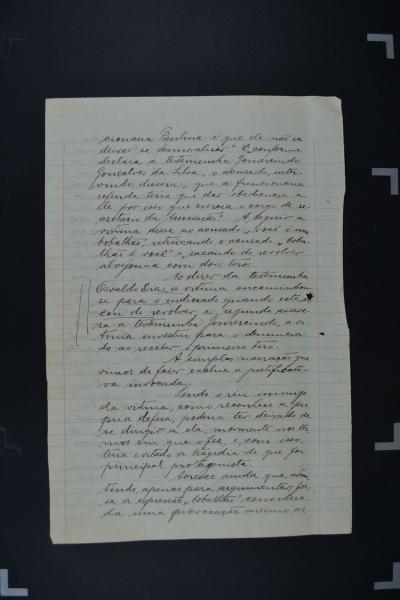 cionaria Paulina e que ele não ia
deixar se desmoralisar." E conforme
declara a testemunha Gomercindo
Gonçalves da Silva, o acusado, inter-
vindo, dissera, que a funcionaria
referida teria que dar obediencia a
ele por isso que exercia o cargo de se-
cretario da Associação." A seguir a
vitima disse ao acusado "você é um
bobalhão", retrucando o acusado "boba-
lhão é você" e, sacando do revolver
alvejou-a com dois tiros.
No dizer da testemunha
Osvaldo Dias, a vitima encaminhou-
se para o indiciado quando este sa-
cou do revolver, e, segundo asseve-
ra a testemunha Gomercindo, a vi-
tima investiu para o denuncia-
do ao receber o primeiro tiro.
A simples narração que
vimos de fazer exclue a justificati-
va invocada.
Sendo o réu inimigo
da vitima, como reconhece a pro-
pria defesa, poderia ter deixado de
se dirigir a ela, mormente nos ter-
mos em que o fez, e, com isso,
teria evitado a tragedia de que foi
principal protagonista.
Acresce ainda que, admi-
tindo, apenas para argumentar, fos-
se a expressão "bobalhão" considera-
da uma provocação, mesmo as